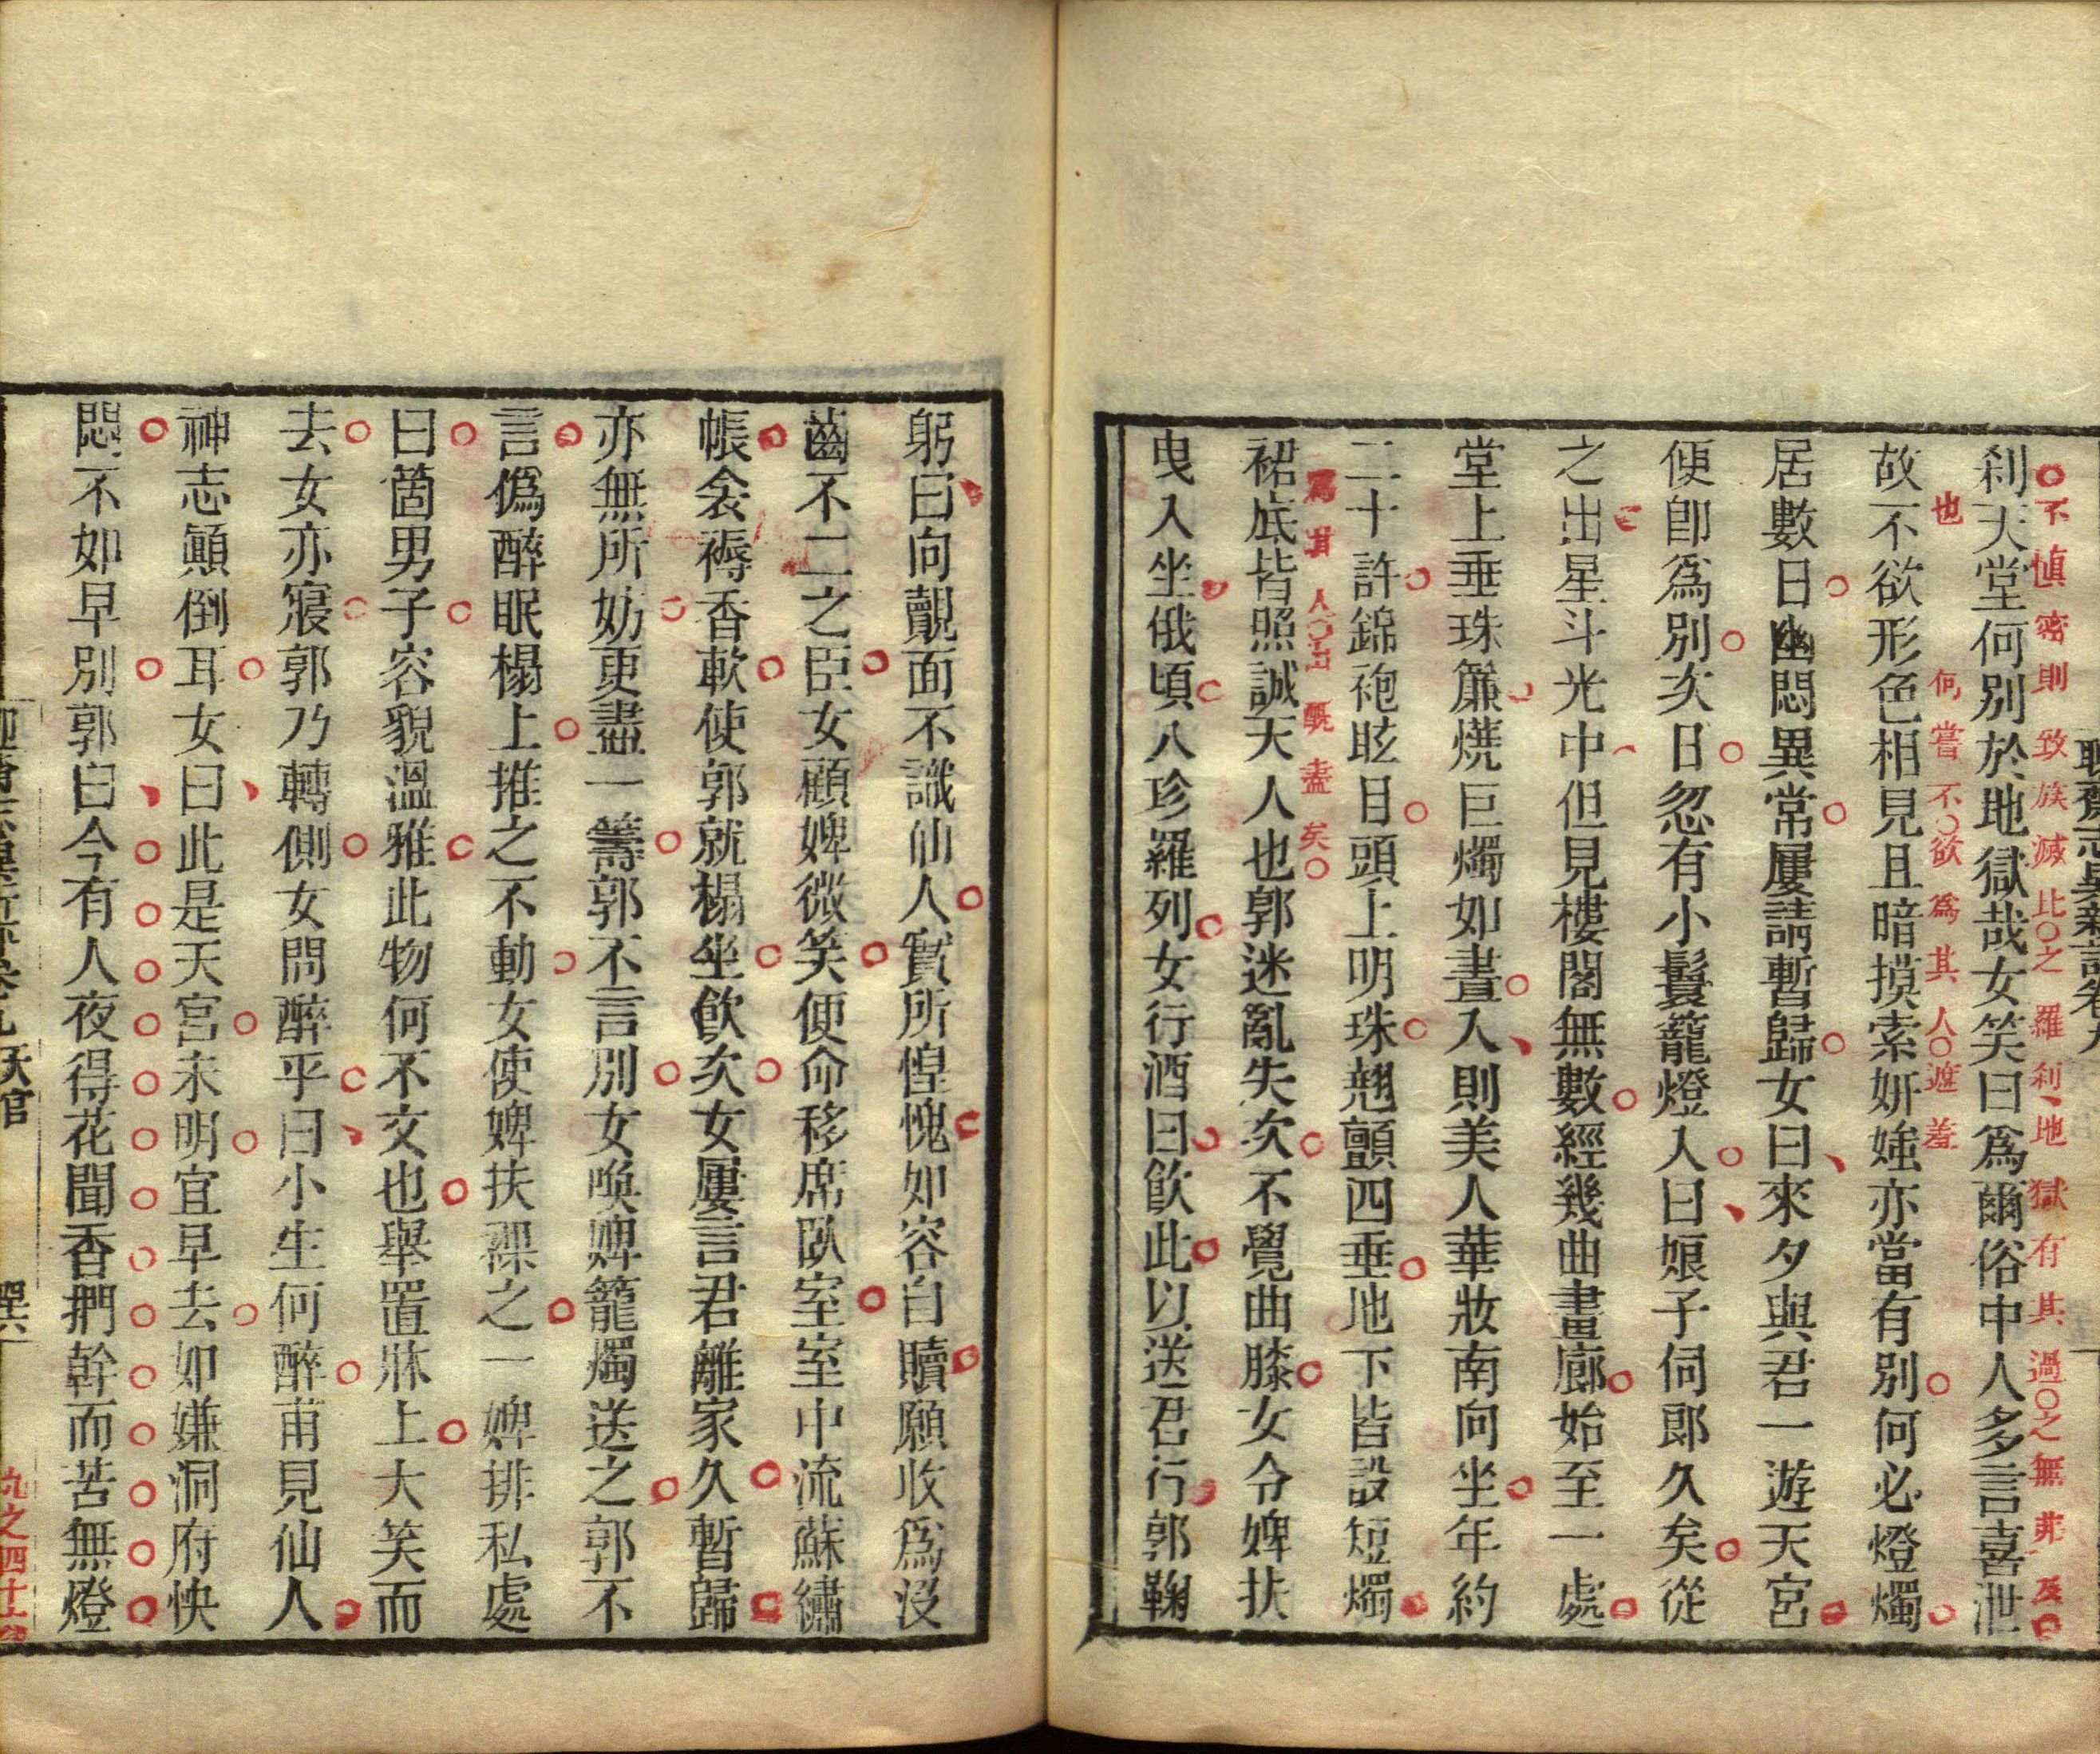 聊齋志異新評卷九
不慎密則致族滅此之羅刹地獄有其過之無弗及
刹天堂何別於地獄哉女笑曰爲爾俗中人多言喜泄
也何嘗不欲爲其人遮羞
故不欲形色相見且暗摸索妍媸亦當有別何必燈燭
居數日幽悶異常屢請暫歸女曰來夕與君一遊天宮
便卽爲別次日忽有小鬟籠燈入曰娘子伺郎久矣從
之出星斗光中但見樓閣無數經幾曲畫廊始至一處
堂上垂珠簾燒巨燭如晝入則美人華妝南向坐年約
二十許錦袍眩目頭上明珠翹顫四垂地下皆設短燭
爲其人羞旣盡矣
裙底皆照誠天人也郭迷亂失次不覺曲膝女令婢扶
曳入坐俄頃八珍羅列女行酒曰飮此以送君行郭鞠
躬曰向覿面不識仙人實所惶愧如容自贖願收爲沒
齒不二之臣女顧婢微笑便命移席臥室室中流蘇繡
帳衾褥香軟使郭就榻坐飮次女屢言君離家久暫歸
亦無所妨更盡一籌郭不言別女喚婢籠燭送之郭不
言僞醉眠榻上推之不動女使婢扶裸之一婢排私處
曰箇男子容貌溫雅此物何不文也舉置牀上大笑而
去女亦寢郭乃轉側女問醉乎曰小生何醉甫見仙人
神志顚倒耳女曰此是天宮未明宜早去如嫌洞府怏
悶不如早別郭曰今有人夜得花聞香捫幹而苦無燈
聊齋志異新評卷九 天宮
九之四十六